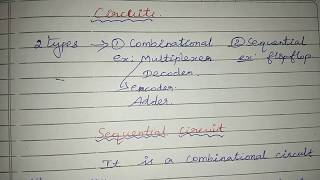 Circuits.
2 types → ① Combinational ② Sequential
ex: Multiplexer ex: flipflop
Decoder
encoder
Adder.
Sequential Circuit
It is a combinational circuit